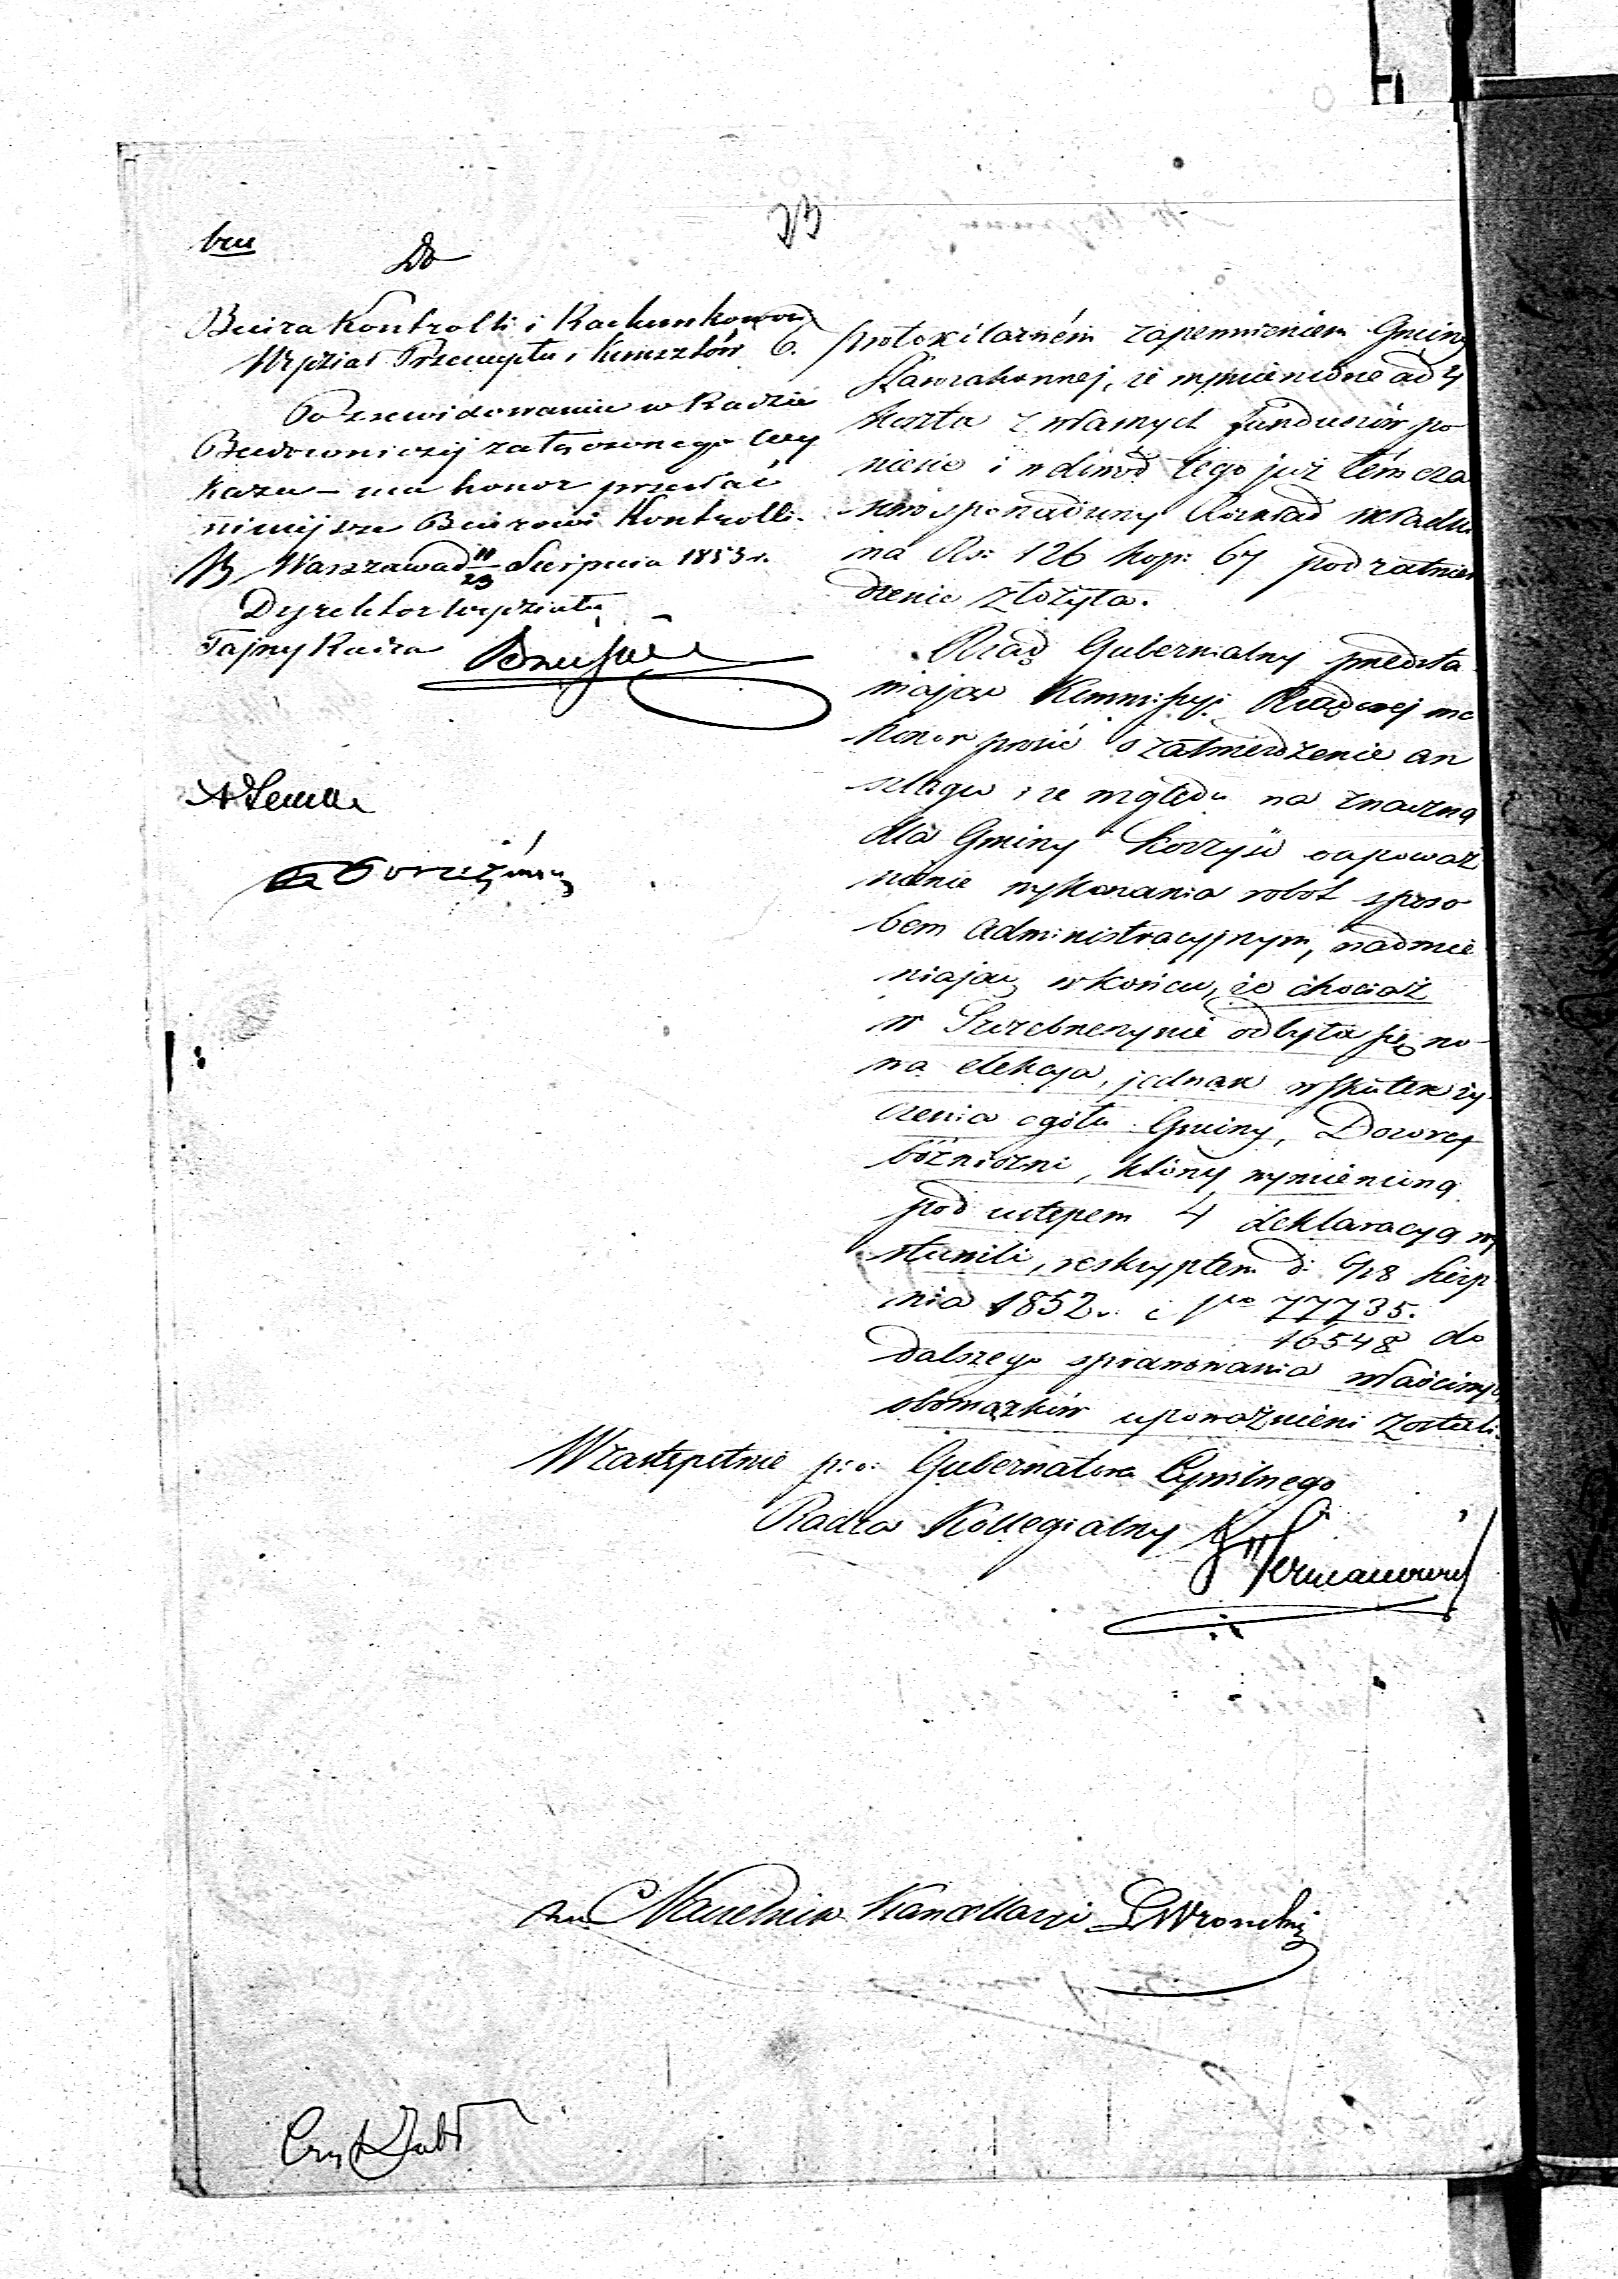 23
Do
Biura Kontrolli i Rachunkowości
Wydział Przemysłu i Kunsztów 6.
Po zrewidowaniu w Radzie
Budowniczej załączonego Wy
kazu — ma honor przesłać
niniejsze Biurowi Kontrolli.
W Warszawie d 11/23 Sierpnia 1853 r.
Dyrektor Wydziału
Tajny Radca
protokólarném zapewnieniem Gminy
że wymienione ad 4
koszta z własnych funduszów po
niesie i w dowód tego już témcza
Rozkład składki
na Rs: 126 kop: 67 pod zatwier
dzenie złożyła.
Rząd Gubernialny przedsta
wiając Kommissyi Rządowej ma
honor prosić o zatwierdzenie an
szlagu i ze względu na znaczną
dla Gminy korzyść upoważ
nienie wykonania robot sposo
bem administracyjnym, nadmie
niając w końcu, że chociaż
w Szczebrzeszynie odbyła się no-
wa elekcja, jednak wskutek ży
czenia ogółu Gminy, Dozorcy
bóżniczni, którzy wymienioną
pod ustępem 4 deklaracyą wy
stawili, reskryptem d: 6/18 Sierp
nia 1852 r. 77735.
16548 do
dalszego sprawowania właściwych
obowiązków upoważnieni zostali.
W zastępstwie p: o: Gubernatora Cywilnego
Radca Kollegialny
Naczelnik Kancellaryi